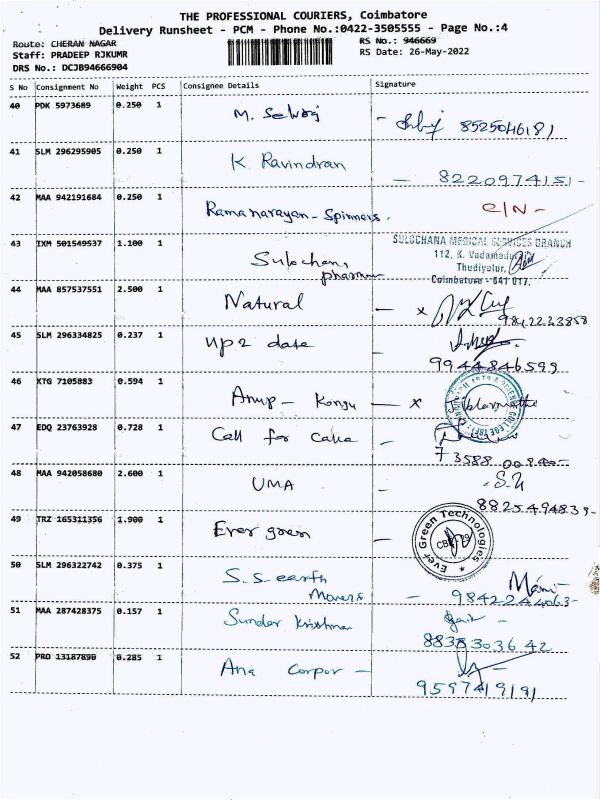 THE PROFESSIONAL COURIERS, Coimbatore
Delivery Runsheet - PCM - Phone No.:0422-3505555 - Page No.:4
Route: CHERAN NAGAR
RS No.: 946669
Staff: PRADEEP RJKUMR
RS Date: 26-May-2022
DRS No.: DCJB94666904
S No Consignment No Weight PCS Consignee Details Signature
40 PDK 5973689 0.250 1 M. Selvaj 8525046181
41 SLM 296295905 0.250 1 K. Ravindran - 8220974151-
42 MAA 942191684 0.250 1 Ramanarayan-Spinners. C/N -
43 IXM 501549537 1.100 1 Sulochan, pharma
SULOCHANA MEDICAL SERVICES BRANCH
112, K. Vadamadurai
Thudiyalur,
Coimbatore - 641 017.
44 MAA 857537551 2.500 1 Natural - x 9842233858
45 SLM 296334825 0.237 1 up 2 date - 9944846599
46 KTG 7105883 0.594 1 Anup - Kongu - x
47 EDQ 23763928 0.728 1 Call for Cake -
48 MAA 942058680 2.600 1 UMA - S.U
8825494839-
49 TRZ 165311356 1.900 1 Ever green -
Ever Green Technologies
50 SLM 296322742 0.375 1 S.S. earth Movers - Mani
9842244063-
51 MAA 287428375 0.157 1 Sunder Krishna
8838303642
52 PRO 13187890 0.285 1 Ana Corpor -
9597419191